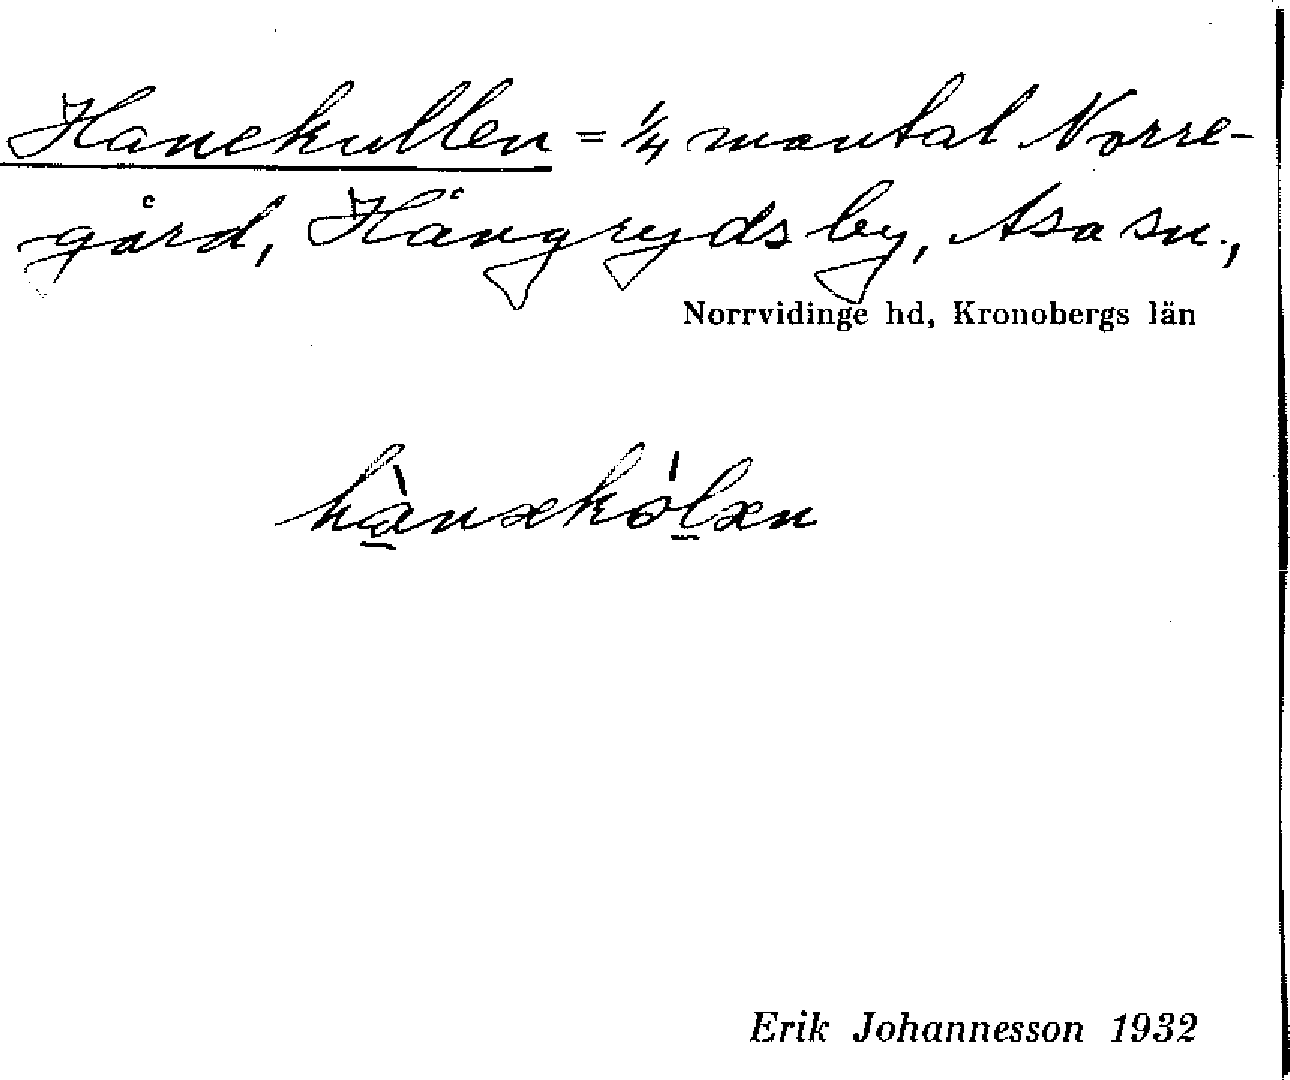 Hanekullen = 1/4 mantal Norre-
gård, Hängryds by, Asa sn.,
Norrvidinge hd, Kronobergs län
Erik Johannesson 1932